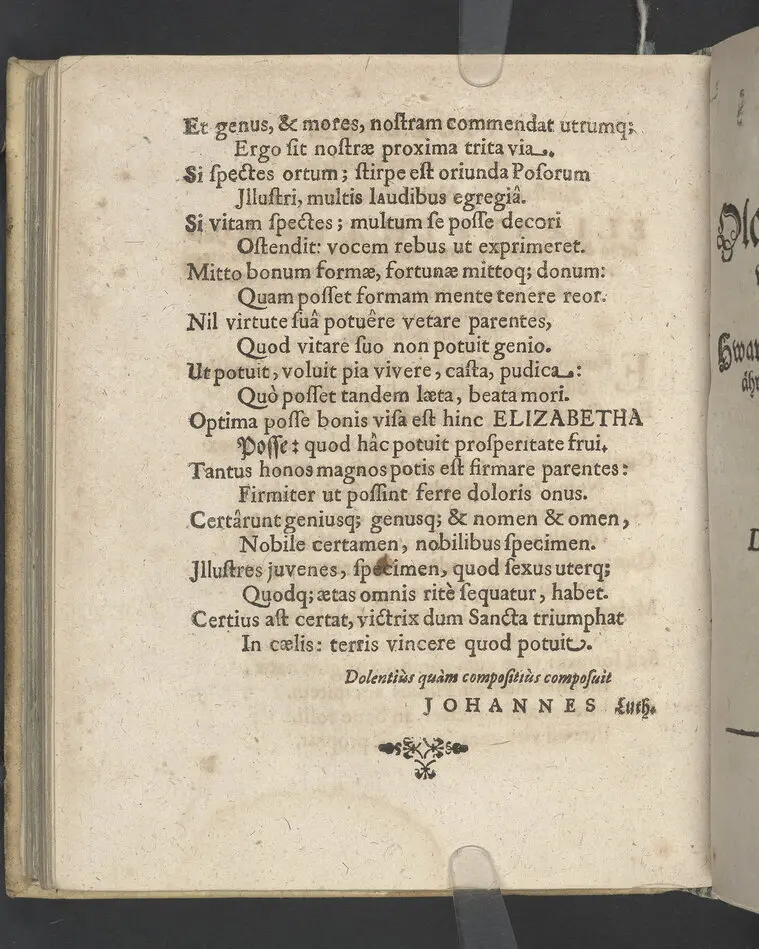 Et genus, & mores, noſtram commendat utrumq;
Ergo ſit noſtræ proxima trita via.
Si ſpectes ortum; ſtirpe eſt oriunda Poſorum
Jlluſtri, multis laudibus egregiâ.
Si vitam ſpectes; multum ſe poſſe decori
Oſtendit: vocem rebus ut exprimeret.
Mitto bonum formæ, fortunæ mittoq; donum:
Quam poſſet formam mente tenere reor.
Nil virtute ſuâ potuêre vetare parentes,
Quod vitare ſuo non potuit genio.
Ut potuit, voluit pia vivere, caſta, pudica:
Quò poſſet tandem læta, beata mori.
Optima poſſe bonis viſa eſt hinc ELIZABETHA
Poſſe: quod hâc potuit proſperitate frui.
Tantus honos magnos potis eſt firmare parentes:
Firmiter ut poſſint ferre doloris onus.
Certârunt geniusq; genusq; & nomen & omen,
Nobile certamen, nobilibus ſpecimen.
Jlluſtres juvenes, ſpecimen, quod ſexus uterq;
Quodq; ætas omnis ritè ſequatur, habet.
Certius aſt certat, victrix dum Sancta triumphat
In cælis: terris vincere quod potuit.
Dolentiùs quàm compoſitiùs compoſuit
JOHANNES Luth.